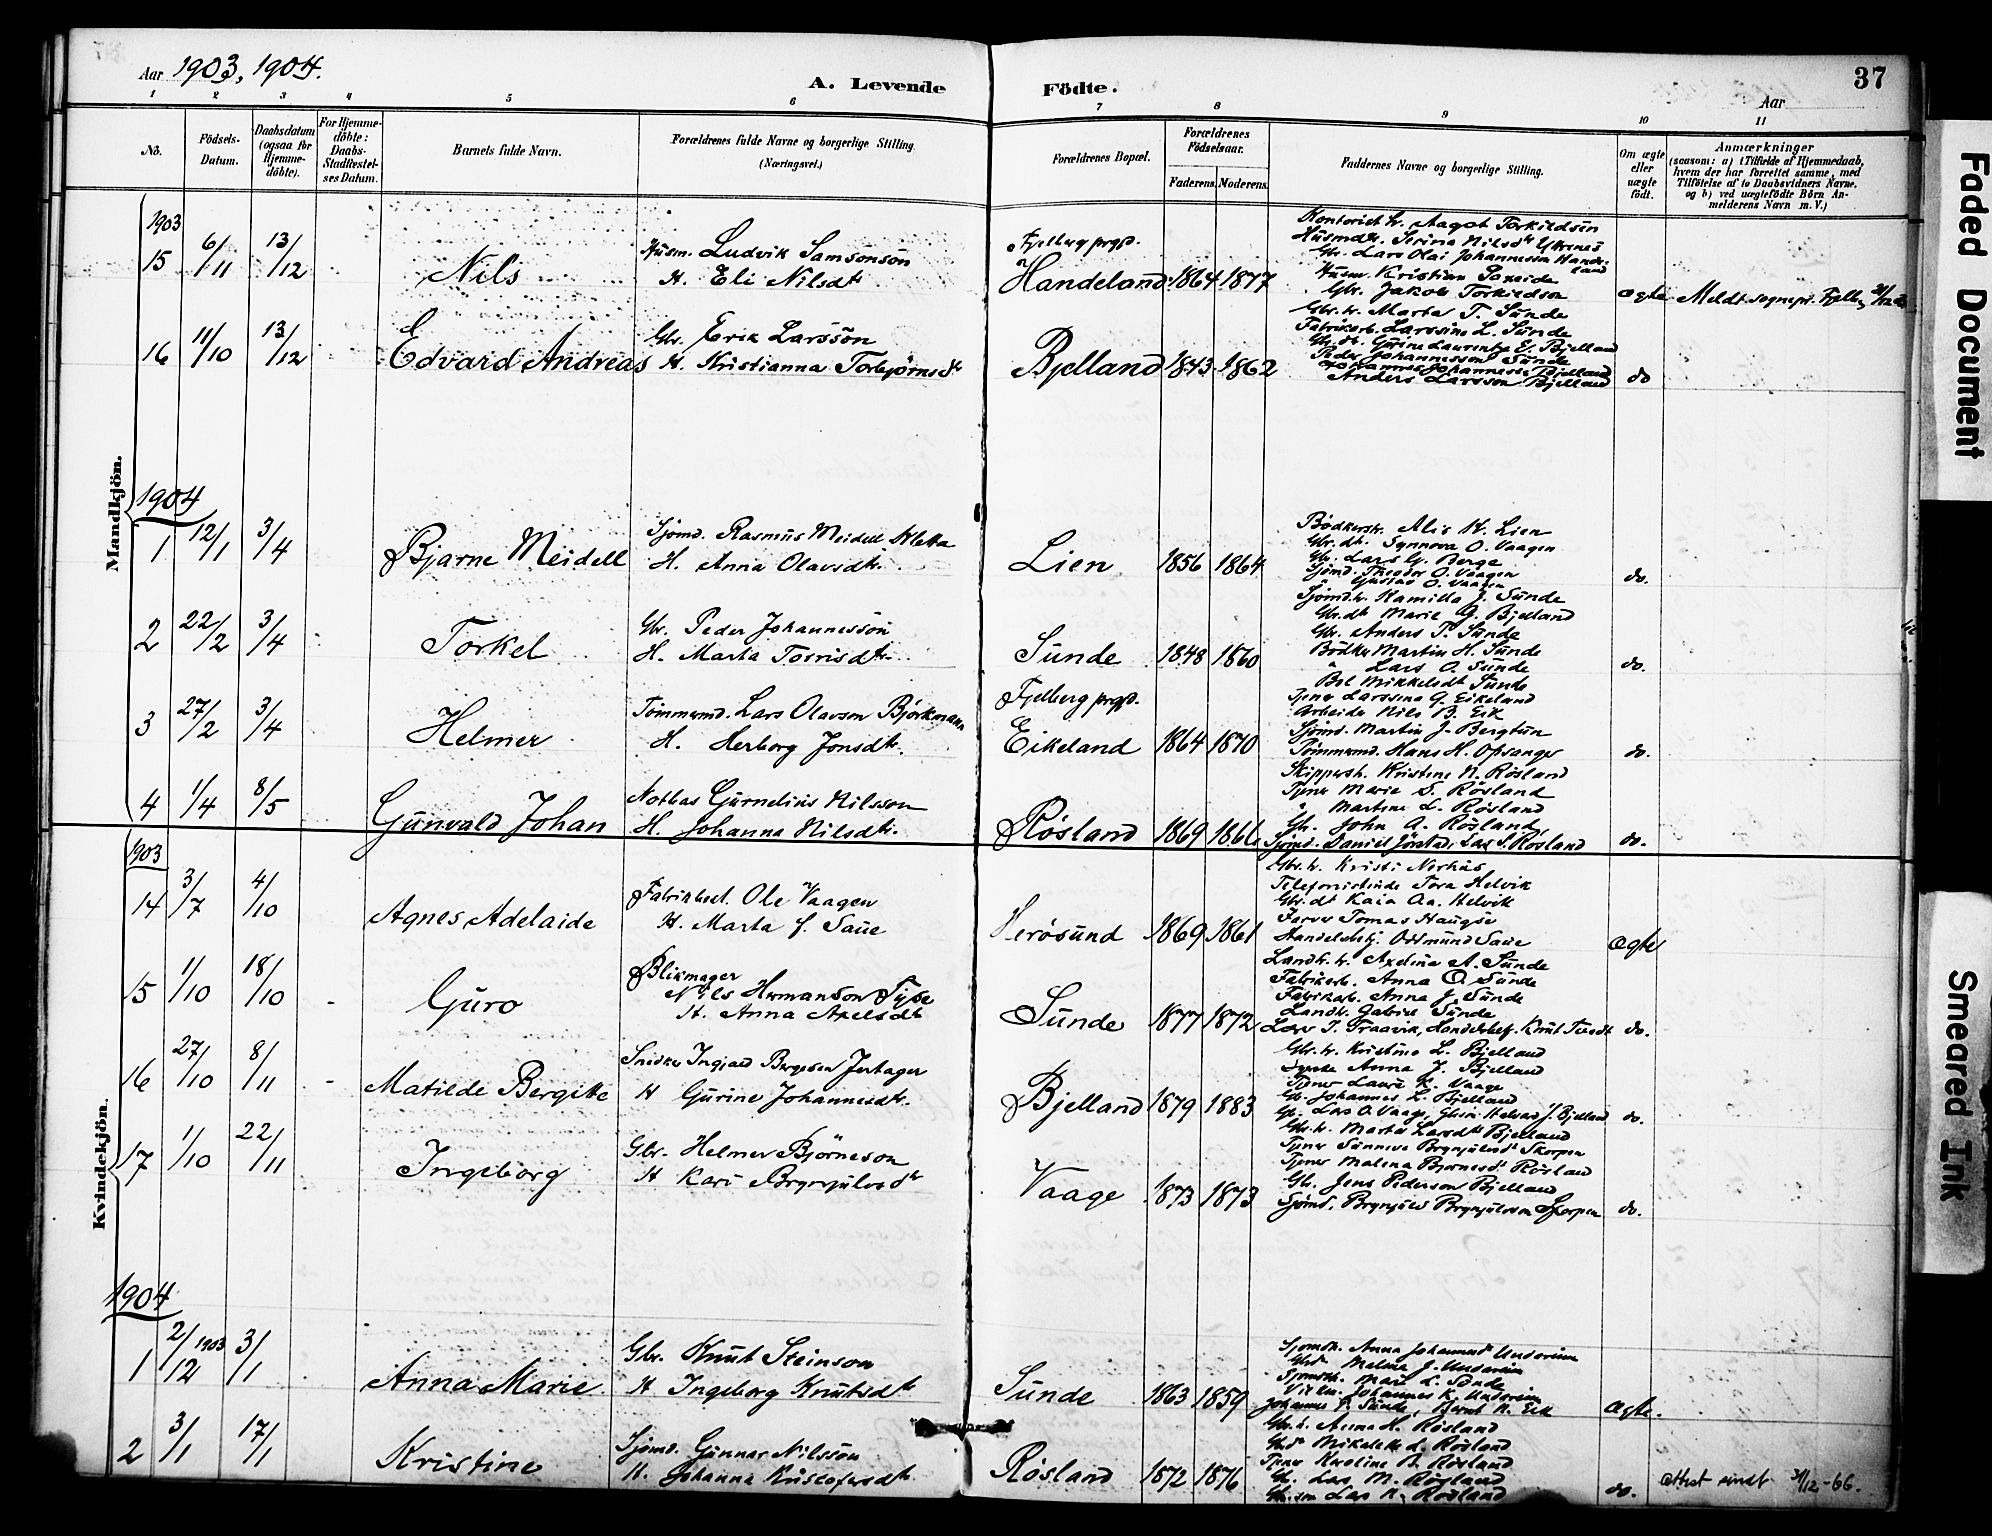 Aar 1903, 1904.
A. Levende Födte.
37
Aar
1 2 3 4 5 6 7 8 9 10 11
No.
Födsels-Datum.
Daabsdatum (ogsaa for Hjemme-döbte).
For Hjemme-döbte: Daabs-Stadfæstel-ses Datum.
Barnets fulde Navn.
Forældrenes fulde Navne og borgerlige Stilling. (Næringsvei.)
Forældrenes Bopæl.
Forældrenes Födselsaar.
Faderens. Moderens.
Faddernes Navne og borgerlige Stilling.
Om ægte eller uægte födt.
Anmærkninger (saasom: a) i Tilfælde af Hjemmedaab, hvem der har forrettet samme, med Tilföielse af to Daabsvidners Navne. og b) ved uægtefödte Börn An-melderens Navn m. V.)
Mandkjön.
1903
15 6/11 13/12 Nils
Husm. Ludvik Samsonson
H. Eli Nilsdtr
Fjelberg prgjd.
Handeland 1864 1877
Kontorist Aagot Torkildsen
Husmdtr. Serina Nilsdtr Ytrenes
Gbr. Lars Olai Johannessen Handeland
Husm. Kristian
Gbr. Jakob Torkildson
ægte Meldt sognepr. Fjelb.
16 11/10 13/12 Edvard Andreas
Gbr. Erik Larsson
H. Kristianna Torbjørnsdtr
Bjelland 1843 1862
Gbr. h. Marta T. Sunde
Fabrikarb. Larssine L. Sunde
Gbr. dt. Gurine Laurentze E. Bjelland
Peder Johannesson Sunde
Johannes Johannessen Bjelland
Anders Larsson Bjelland
do
1904
1 12/1 3/4 Bjarne Meidell
Sjømd. Rasmus Meidell Kletta
H. Anna Olavsdtr.
Lien 1856 1864
Bødkerh. Alis H. Lien
Gbr. dt. Synnova O. Vaagen
Gbr. Lars G. Berge
Sjømd. Theodor O. Vaagen
Gustav O. Vaagen
do.
2 22/2 3/4 Torkel
Gbr. Peder Johannesson
H. Marta Torrisdtr.
Sunde 1848 1860
Sjømdh. Kamilla J. Sunde
Gbr. dt Marie G. Bjelland
Gbr. Anders T. Sunde
Bødker Martin H. Sunde
" Lars O. Sunde
do.
3 27/2 3/4 Helmer
Tømmermd. Lars Olavson Björkmann
H. Herborg Jonsdtr.
Fjelberg prgjd.
Eikeland 1864 1870
Mikkelsdt Sunde
Tjener Larssena G. Eikeland
Arbeider Nils B. Eik
Sjømd. Martin J. Bergtun
Tömmermd. Hans H. Opsanger
do.
4 1/4 8/5 Gunvald Johan
Notbas Gurnelius Nilsson
H. Johanna Nilsdtr.
Røsland 1869 1866
Skipperh. Kristine N. Røsland
Tjener Marie S. Røsland
" Martine L. Røsland
Gbr. John A. Røsland,
Sjømd. Daniel Jörstad, Lars S. Røsland
do.
Kvindekjön.
1903
14 3/7 4/10 Agnes Adelaide
Fabrikbest. Ole Vaagen
H. Marta J. Saue
Herøsund 1869 1861
Gbr. h. Kristi Nerhus
Telefonistinde Tora Helvik
Gbr. dt Kaia Aa. Helvik
Farver Tomas Haugse
Handelsbtj. Oddmund Saue
ægte
15 1/10 18/10 Guro
Blikmager
Nils Hermanson Tyse
H. Anna Axelsdt
Sunde 1877 1872
Landh. h. Axelina A. Sunde
Fabrikarb. Anna O. Sunde
Fabrikarb. Anna J. Sunde
Landh. Gabriel Sunde
Lars T. Traavik, Handelsbetj. Knut Tvedt
do.
16 27/10 8/11 Matilde Bergitte
Snidker Ingvald Bergesen Jertager
H Gurine Johannesdtr.
Bjelland 1879 1883
Gbr. h. Kristine L. Bjelland
Anna J. Bjelland
Tjener Laura K. Vaage
Gbr. Johannes L. Bjelland
Gbr. Lars O. Vaage, Halvard J. Bjelland
do.
17 1/10 22/11 Ingeborg
Gbr. Helmer Björneson
H Kari Brynjulvsdtr
Vaage 1873 1873
Gbr. h. Marta Larsdt Bjelland
Tjener Sunneva Brynjulvsdt Skorpen
Tjener Malena Bjørnesdt Røsland
Gbr. Jens Pederson Bjelland
Sjømd. Brynjulv Brynjulvson Skorpen
do.
1904
1 2/12 1903 3/1 Anna Marie
Gbr. Knut Steinson
H Ingeborg Knutsdtr
Sunde 1863 1859
Sjømdh. Anna Johannesdt Undarheim
Malene J. Undarheim
Mari L. Sunde
Johannes K. Undarheim
Johannes P. Sunde, Bernt N. Eik
ægte.
2 3/1 17/1 Kristine
Sjømd. Gunnar Nilsson
H. Johanna Kristofersdtr
Røsland 1872 1876
Gbr. h. Anna H. Røsland
Mikalette L. Røsland
Tjener Karoline B. Røsland
Gbr. Lars M. Røsland
Lars N. Røsland
do.
Attest sendt 31/12-66.
Faded Document
Smeared Ink